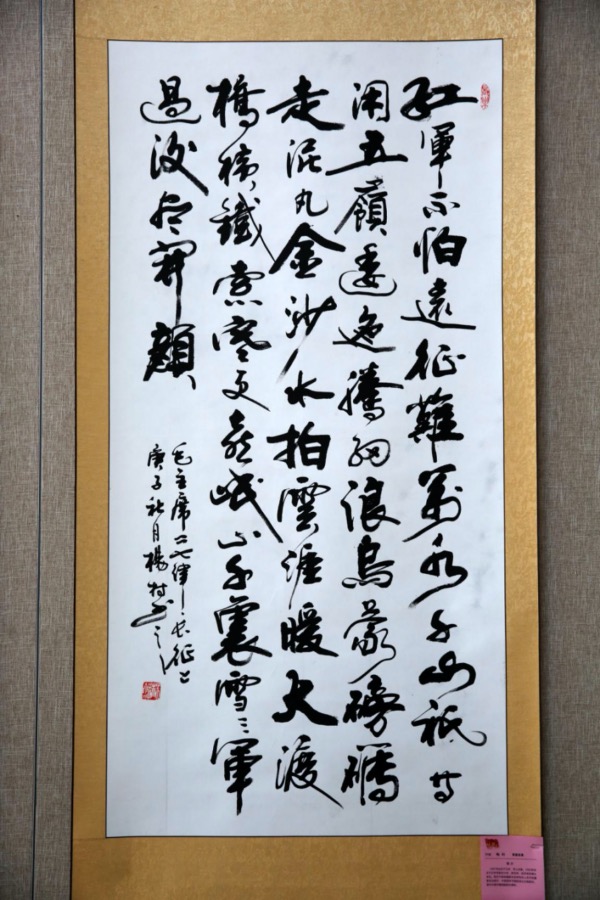 紅軍不怕遠征難萬水千山祇等
閑五嶺逶迤騰細浪烏蒙磅礴
走泥丸金沙水拍雲涯暖大渡
橋橫鐵索寒更喜岷山千裏雪三軍
過後盡開顏
毛主席七律長征
庚子秋月楊村書之